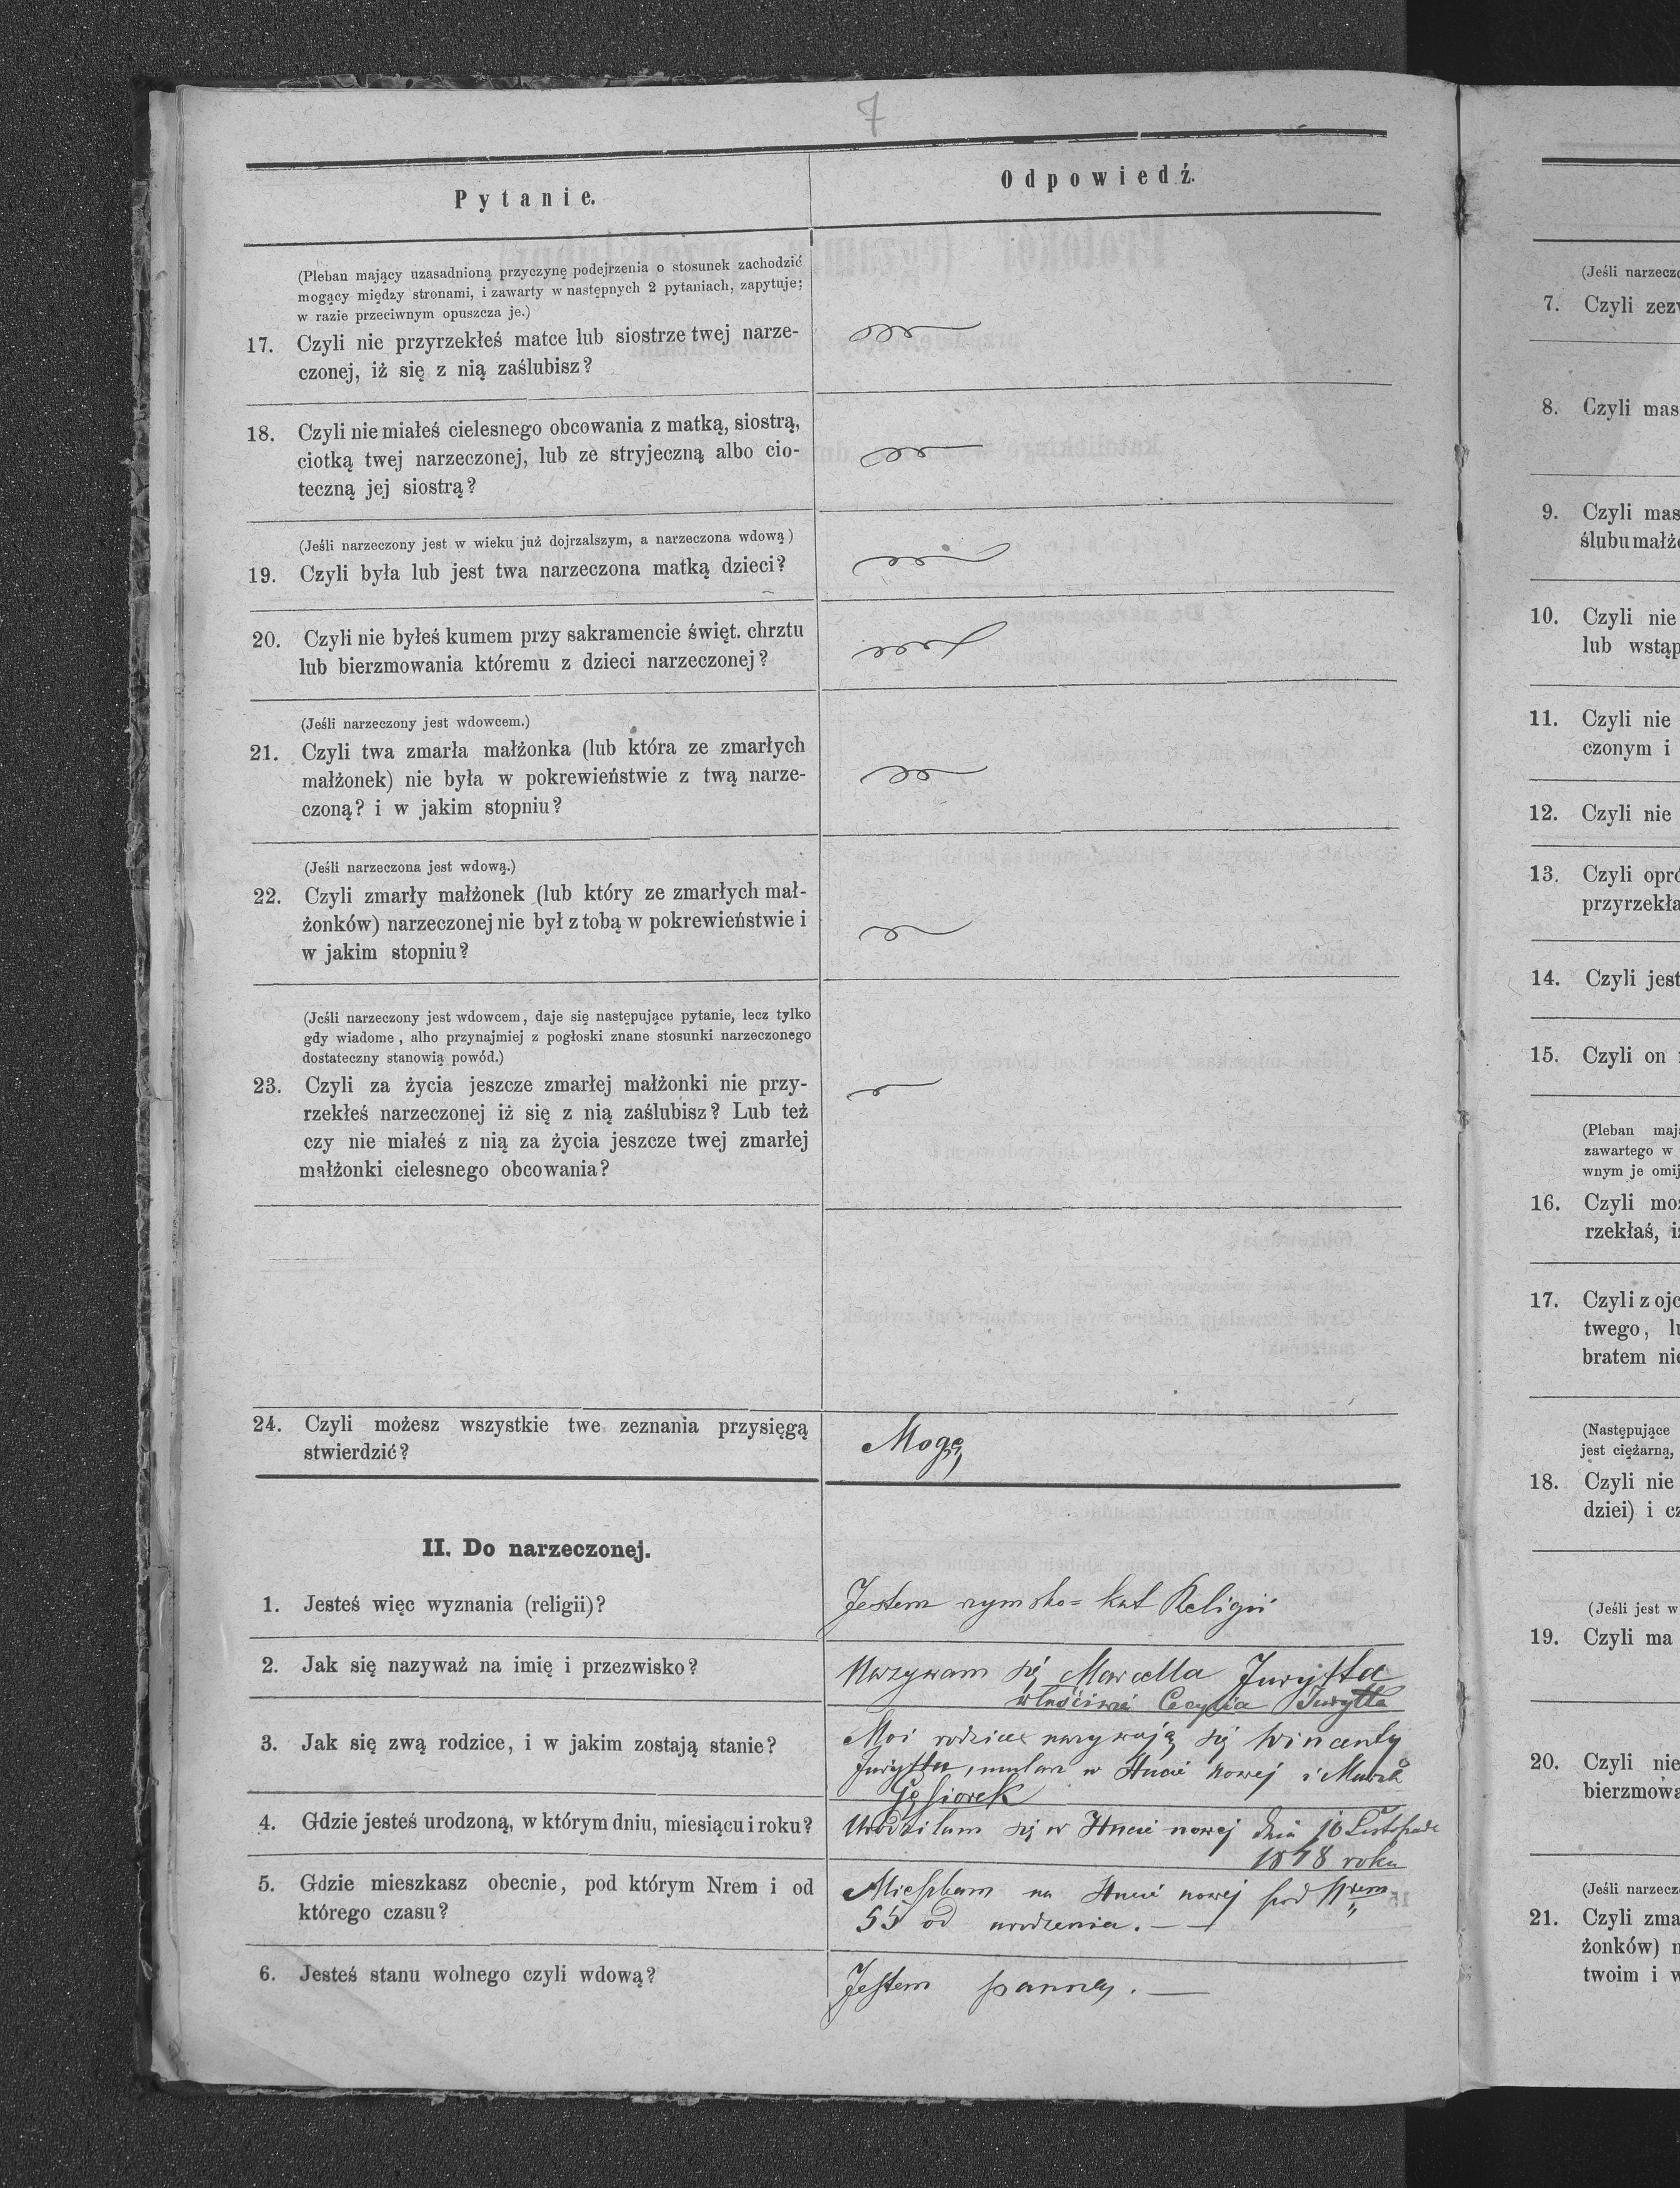 7
Pytanie.
Odpowiedź.
(Pleban mający uzasadnioną przyczynę podejrzenia o stosunek zachodzić
mogący między stronami, i zawarty w następnych 2 pytaniach, zapytuje;
w razie przeciwnym opuszcza je.)
17. Czyli nie przyrzekłeś matce lub siostrze twej narze-
czonej, iż się z nią zaślubisz?
18. Czyli nie miałeś cielesnego obcowania z matką, siostrą,
ciotką twej narzeczonej, lub ze stryjeczną albo cio-
teczną jej siostrą?
(Jeśli narzeczony jest w wieku już dojrzalszym, a narzeczona wdową)
19. Czyli była lub jest twa narzeczona matką dzieci?
20. Czyli nie byłeś kumem przy sakramencie święt. chrztu
lub bierzmowania któremu z dzieci narzeczonej?
(Jeśli narzeczony jest wdowcem.)
21. Czyli twa zmarła małżonka (lub która ze zmarłych
małżonek) nie była w pokrewieństwie z twą narze-
czoną? i w jakim stopniu?
(Jeśli narzeczona jest wdową.)
22. Czyli zmarły małżonek (lub który ze zmarłych mał-
żonków) narzeczonej nie był z tobą w pokrewieństwie i
w jakim stopniu?
(Jeśli narzeczony jest wdowcem, daje się następujące pytanie, lecz tylko
gdy wiadome, alho przynajmiej z pogłoski znane stosunki narzeczonego
dostateczny stanowią powód.)
23. Czyli za życia jeszcze zmarłej małżonki nie przy-
rzekłeś narzeczonej iż się z nią zaślubisz? Lub też
czy nie miałeś z nią za życia jeszcze twej zmarłej
małżonki cielesnego obcowania?
24. Czyli możesz wszystkie twe zeznania przysięgą
stwierdzić?
Mogę
II. Do narzeczonej.
1. Jesteś więc wyznania (religii)?
Jestem rymsko=kat Religii
2. Jak się nazyważ na imię i przezwisko?
Nazywam się Marcella Jurysta
właściwie Cecylia Jurytta
3. Jak się zwą rodzice, i w jakim zostają stanie?
Moi rodzice nazywają się Wincenty
Jurysta, mularz w Hucie nowej i
Gąsiorek
4. Gdzie jesteś urodzoną, w którym dniu, miesiącu i roku?
Urodziłam się w Hucie nowej dnia 10 Listopada
1878 roku
5. Gdzie mieszkasz obecnie, pod którym Nrem i od
którego czasu?
Mieszkam na Hucie nowej pod Nrem
55 od urodzenia.
6. Jesteś stanu wolnego czyli wdową?
Jestem panną.
(Jeśli narzeczo
7. Czyli zezw
8. Czyli mas
9. Czyli mas
ślubu małże
10. Czyli nie
lub wstąp
11. Czyli nie
czonym i
12. Czyli nie
13. Czyli opró
przyrzekła
14. Czyli jest
15. Czyli on
(Pleban maj
zawartego w
wnym je omij
16. Czyli moż
rzekłaś, iż
17. Czyli z ojc
twego, lu
bratem nie
(Następujące
jest ciężarną,
18. Czyli nie
dziei) i cz
(Jeśli jest w
19. Czyli ma
20. Czyli nie
bierzmowa
(Jeśli narzecz
21. Czyli zma
żonków) n
twoim i w